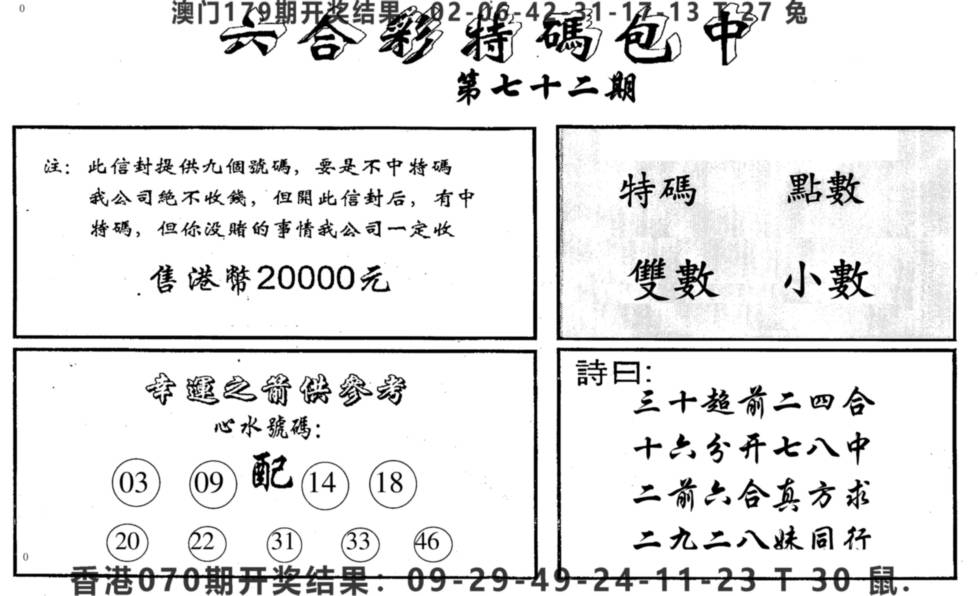 0
澳门179期开奖结果：02-06-42-31-17-13 T 27 兔
六合彩特碼包中
第七十二期
注：此信封提供九個號碼，要是不中特碼
我公司絕不收錢，但開此信封后，有中
特碼，但你没賭的事情我公司一定收
售港幣20000元
特碼 點數
雙數 小數
幸運之前供參考
心水號碼：
03 09 配 14 18
20 22 31 33 46
詩曰：
三十趙前二四合
十六分开七八中
二前六合真方求
二九二八妹同行
0
香港070期开奖结果：09-29-49-24-11-23 T 30 鼠.